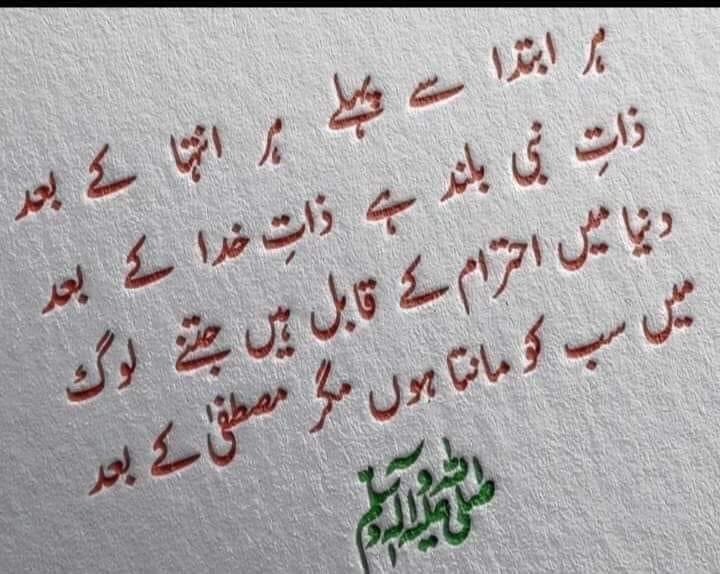 ہر ابتدا سے پہلے ہر انتہا کے بعد
ذاتِ نبی بلند ہے ذاتِ خدا کے بعد
دنیا میں احترام کے قابل ہیں جتنے لوگ
میں سب کو مانتا ہوں مگر مصطفیٰ کے بعد
صلی اللہ علیہ وآلہ وسلم